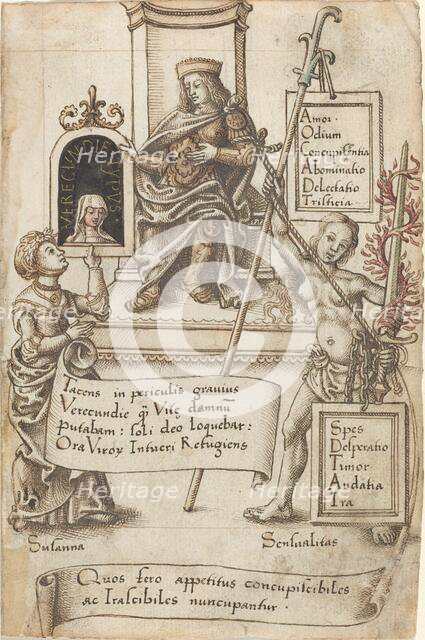 VERECUN
Amor.
Odium
ConcupiScEntia
Abominatio
DeLectatio
Tristicia
Tacens in periculis gravius
Verecundie q̃ Vitę damnũ
putabam: soli deo loquebar:
Ora Viroꝝ Intueri Refugiens
Spes
Desperatio
Timor
Audatia
Ira
Susanna
Sensualitas
Quos fero appetitus concupiscibiles
ac Irascibiles nuncupantur.
heritage Images